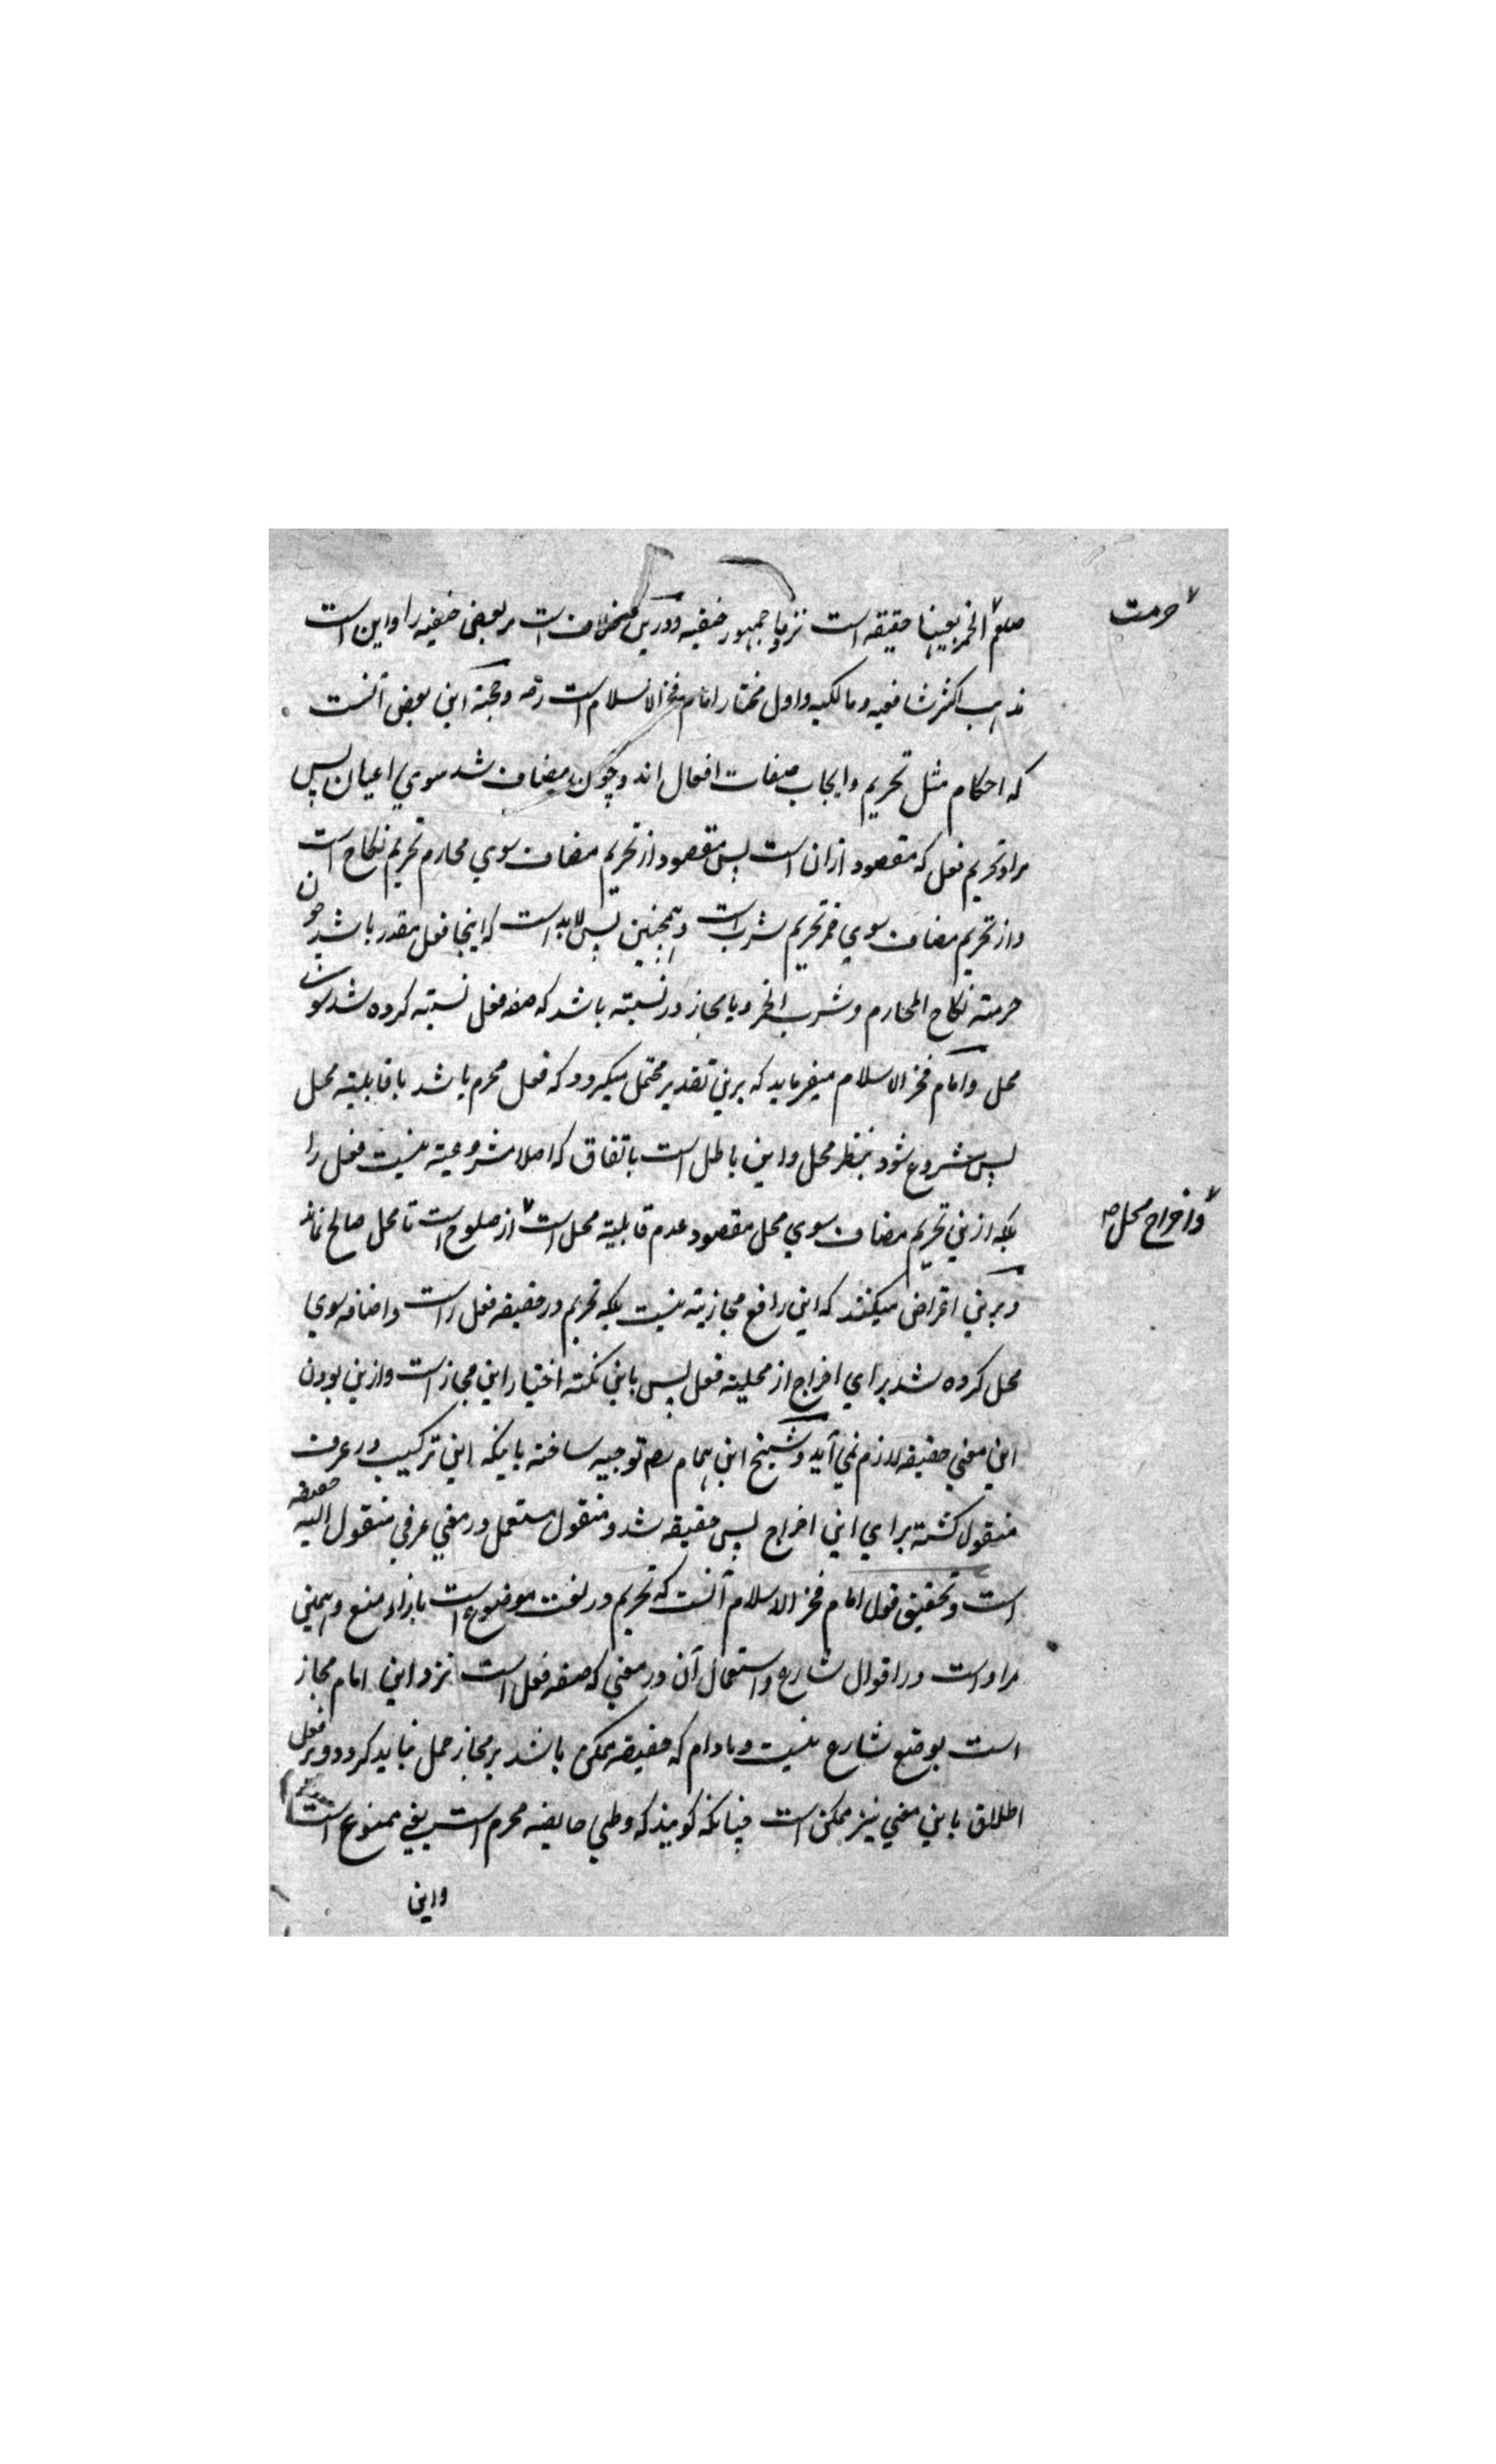 صلعم الخمر بعینها حقیقه است نزد ما جمهور حنفیه و درین خلاف است مر بعضی حنفیه را و این است
حرمت
مذهب اکثر شافعیه و مالکیه و اول مختار امام فخر الاسلام است رحمه و حجته این بعض آنست
که احکام مثل تحریم و ایجاب صفات افعال اند و چون مضاف شد سوی اعیان پس
مراد تحریم فعل که مقصود ازان است پس مقصود از تحریم مضاف سوی محارم تحریم نکاح است
و از تحریم مضاف سوی خمر تحریم شرب است و همچنین پس لابد است که اینجا فعل مقدر باشد چون
حرمته نکاح المحارم و شرب الخمر و یا مجاز در نسبته باشد که صفه فعل نسبته کرده شد سوی
محل و امام فخر الاسلام میفرماید که برین تقدیر محتمل میگردد که فعل محرم باشد با قابلیته محل
پس مشروع شود بنظر محل و این باطل است باتفاق که اصلا مشروعیته نیست فعل را
بلکه ازین تحریم مضاف سوی محل مقصود عدم قابلیته محل است از صلوح است تا محل صالح نماند
و اخراج محل صح
و برین اعتراض میکنند که این رافع مجازیته نیست بلکه تحریم در حقیقه فعل راست و اضافه سوی
محل کرده شد برای اخراج از محلیته فعل پس باین نکته اختیار این مجاز است و ازین بودن
این معنی حقیقه لازم نمی آید و شیخ ابن همام رحم توجیه ساخته باینکه این ترکیب در عرف
منقول گشته برای این اخراج پس حقیقه شد و منقول مستعمل در معنی عرفی منقول الیه حقیقه
است و تحقیق قول امام فخر الاسلام آنست که تحریم در لغت موضوع است بازاء منع و همین
مراد است در اقوال شارع و استعمال آن در معنی که صفه فعل است نزد این امام مجاز
است بوضع شارع نیست و مادام که حقیقه ممکن باشد بر مجاز حمل نباید کرد و بر فعل
اطلاق باین معنی نیز ممکن است چنانکه گویند که وطی حایضه محرم است یعنی ممنوع است
و این